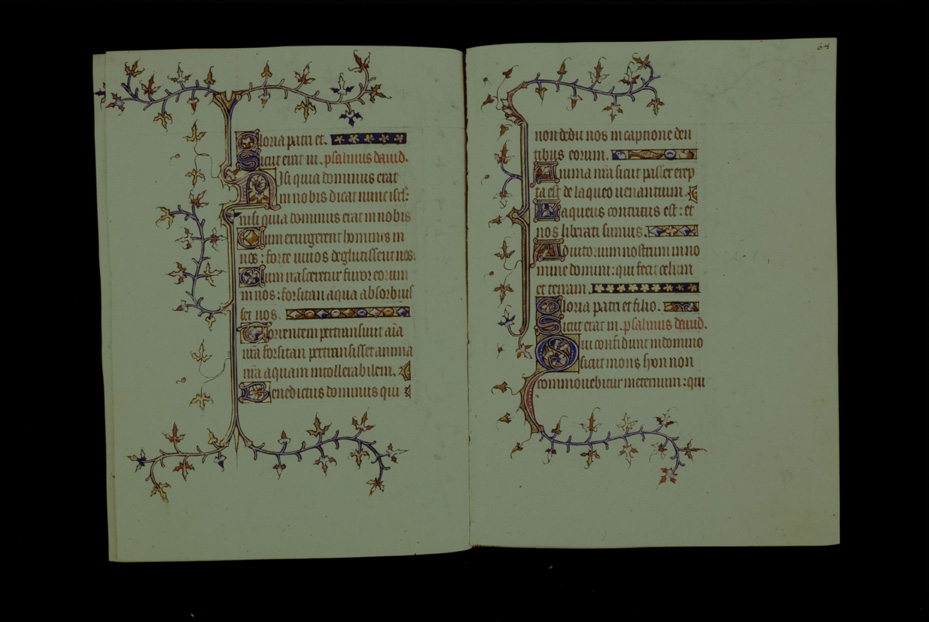 Gloria patri et.
Sicut erat in. psalmus dauid.
Nisi quia dominus erat
in nobis dicat nunc isrl:
nisi quia dominus erat in nobis
Cum exurgerent homines in
nos: forte uiuos deglutissent nos.
Cum irasceretur furor eorum
in nos: forsitan aqua absorbuis
set nos.
Torrentem pertransiuit aĩa
nr̃a forsitan pertransisset anima
nr̃a aquam intollerabilem.
Benedictus dominus qui
non dedit nos in captione den
tibus eorum.
Anima nr̃a sicut passer erep
ta est de laqueo uenantium.
Laqueus contritus est: et
nos liberati sumus.
Adiutorium nostrum in no
mine domini: qui fecit celum
et terram.
Gloria patri et filio.
Sicut erat in. psalmus dauid.
Qui confidunt in domino
sicut mons syon non
commouebitur in eternum: qui